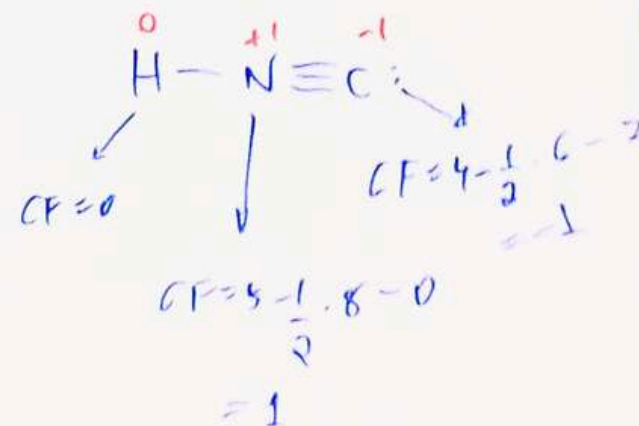 0 +1 -1
H — N ≡ C:
CF = 0
CF = 4 - 1/2 · 6 - 2
= -1
CF = 5 - 1/2 · 8 - 0
= 1